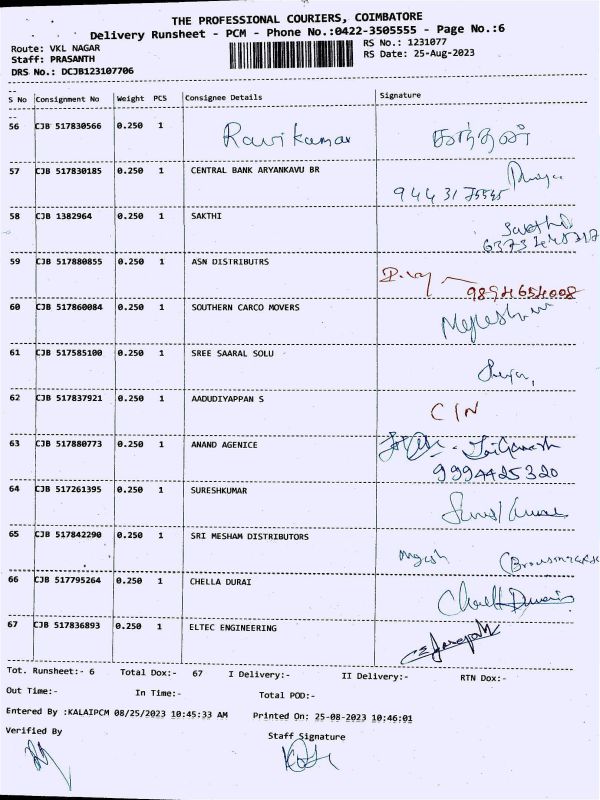 THE PROFESSIONAL COURIERS, COIMBATORE
Delivery Runsheet - PCM - Phone No.:0422-3505555 - Page No.:6
Route: VKL NAGAR RS No.: 1231077
Staff: PRASANTH RS Date: 25-Aug-2023
DRS No.: DCJB123107706
S No Consignment No Weight PCS Consignee Details Signature
56 CJB 517830566 0.250 1 Ravi kumar
57 CJB 517830185 0.250 1 CENTRAL BANK ARYANKAVU BR
58 CJB 1382964 0.250 1 SAKTHI Sakthi
59 CJB 517880855 0.250 1 ASN DISTRIBUTRS
9894654008
60 CJB 517860084 0.250 1 SOUTHERN CARCO MOVERS
61 CJB 517585100 0.250 1 SREE SAARAL SOLU
62 CJB 517837921 0.250 1 AADUDIYAPPAN S C/N
63 CJB 517880773 0.250 1 ANAND AGENICE Jai Ganesh
9994425320
64 CJB 517261395 0.250 1 SURESHKUMAR
65 CJB 517842290 0.250 1 SRI MESHAM DISTRIBUTORS
66 CJB 517795264 0.250 1 CHELLA DURAI
67 CJB 517836893 0.250 1 ELTEC ENGINEERING
Tot. Runsheet:- 6 Total Dox:- 67 I Delivery:- II Delivery:- RTN Dox:-
Out Time:- In Time:- Total POD:-
Entered By :KALAIPCM 08/25/2023 10:45:33 AM Printed On: 25-08-2023 10:46:01
Verified By Staff Signature